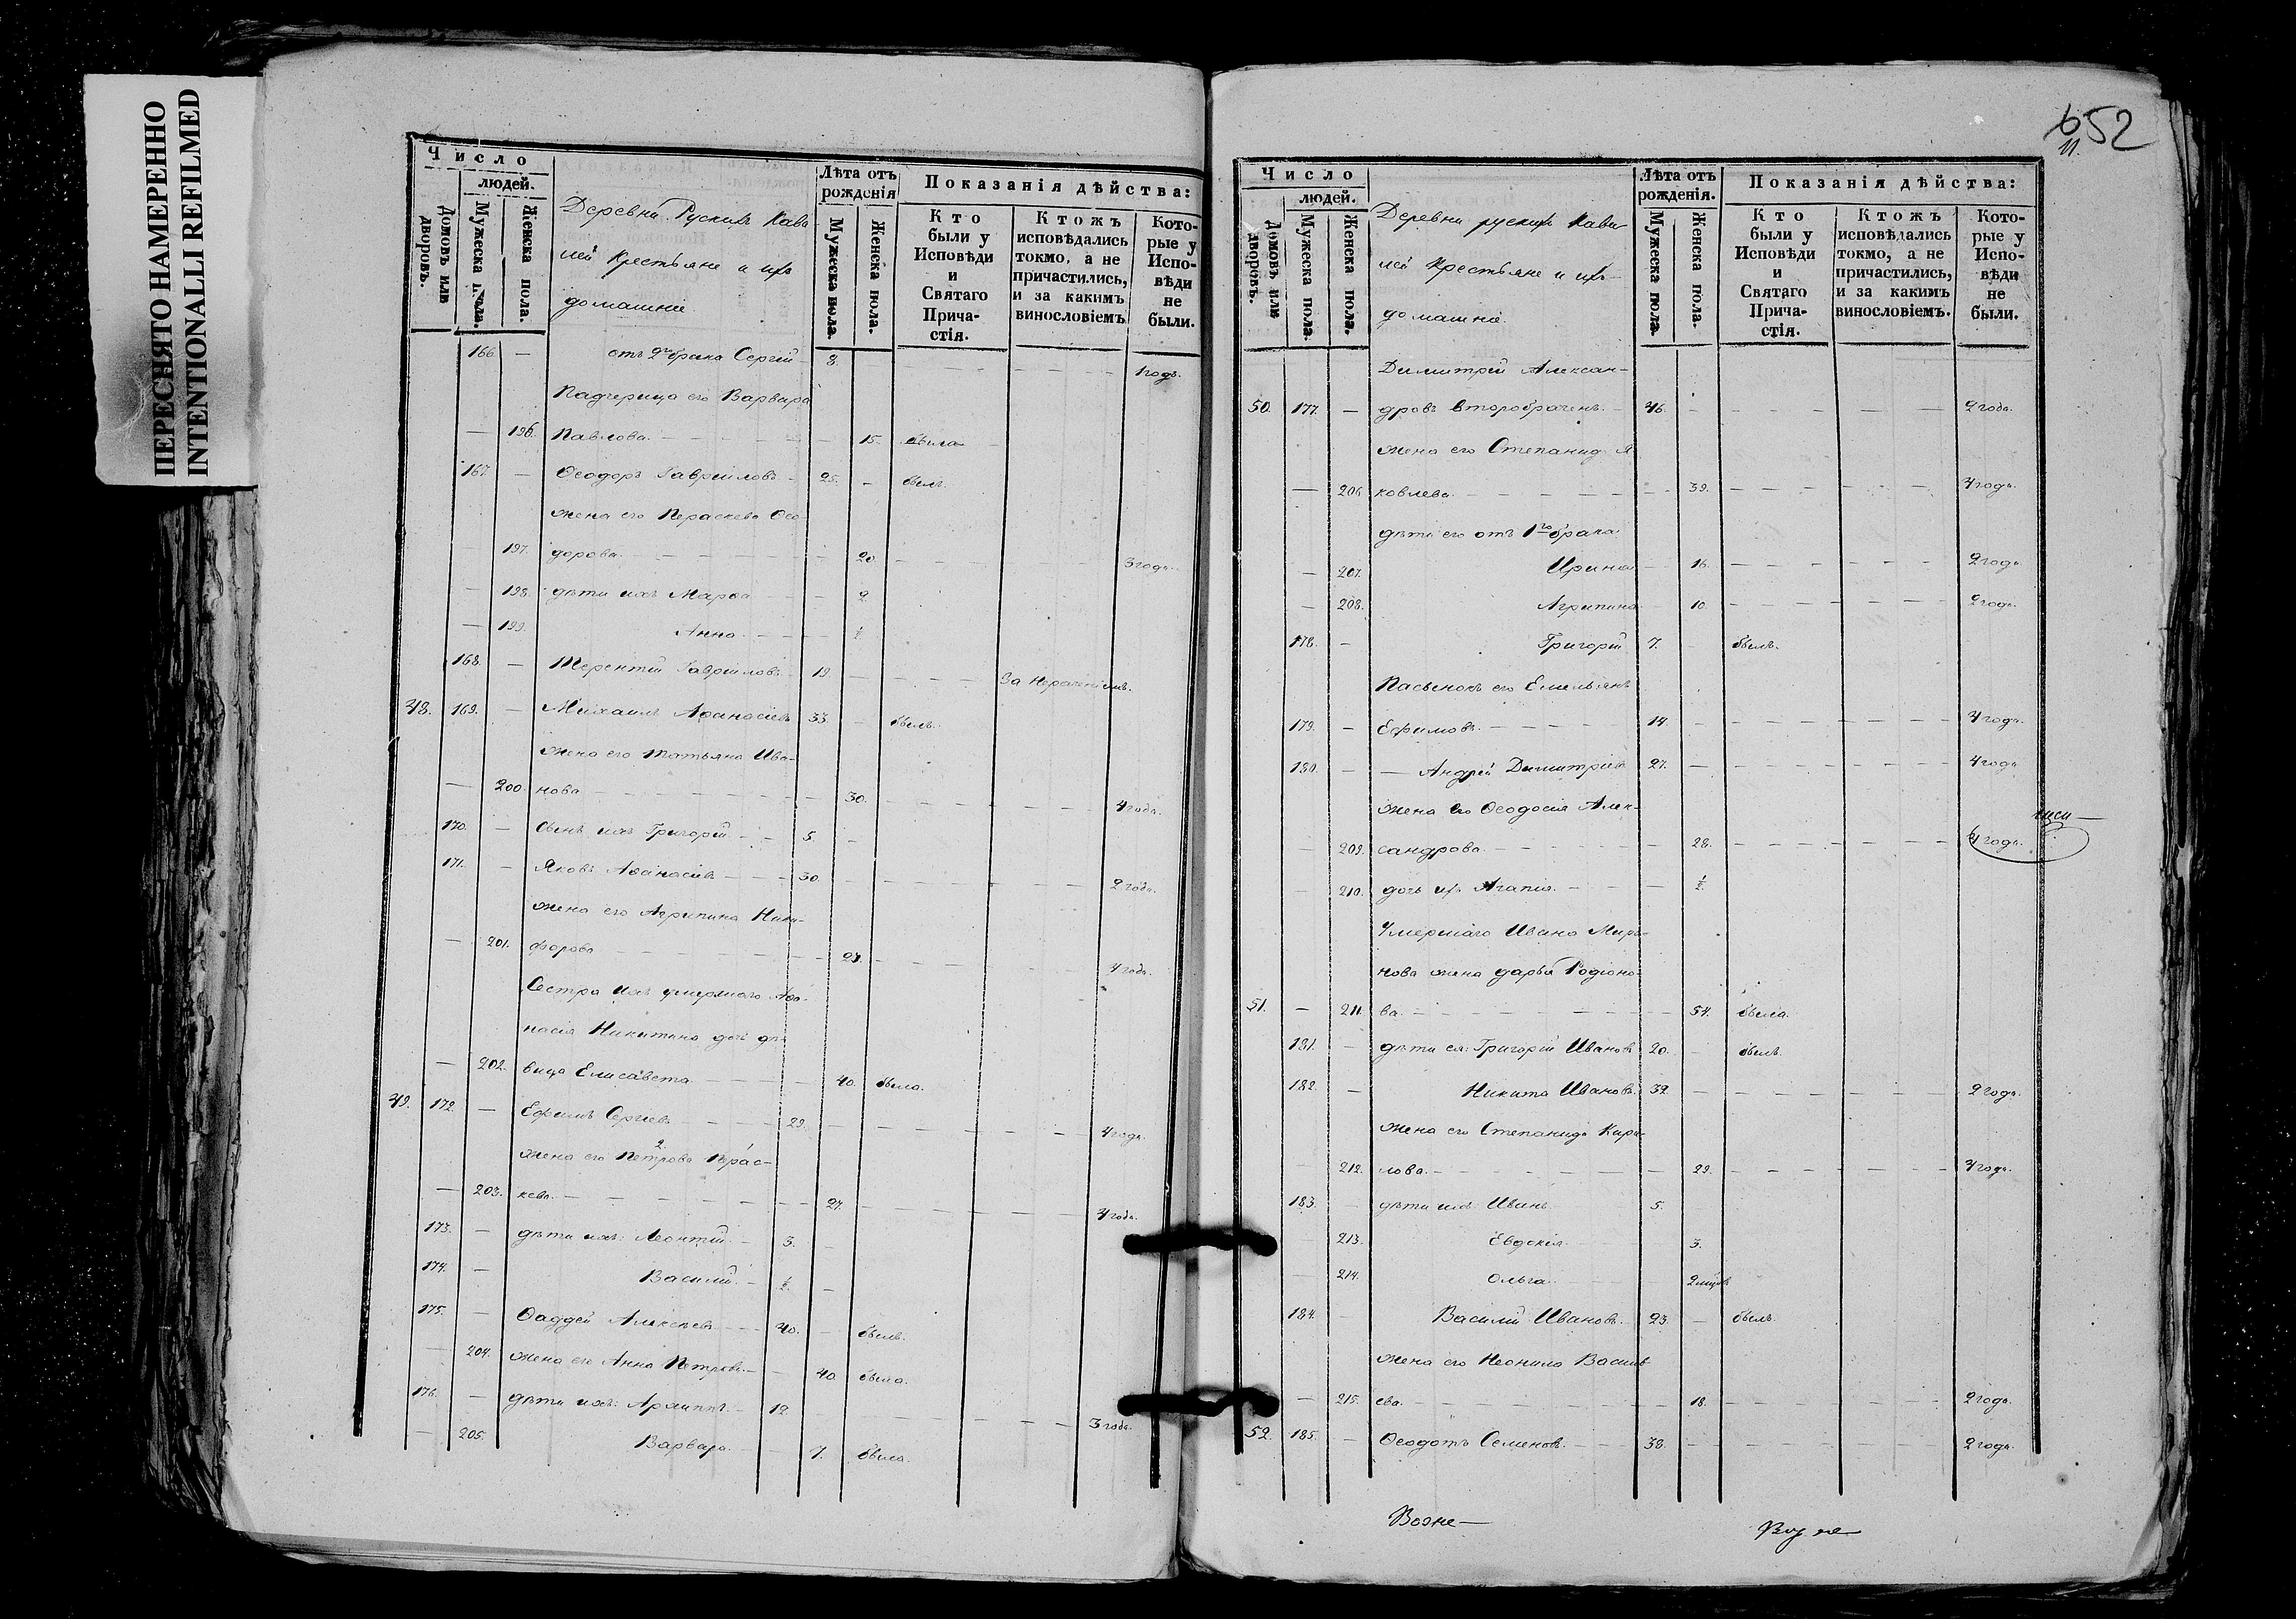 ПЕРЕСНЯТО НАМЕРЕННО
INTENTIONALLI REFILMED
Число
людей.
Домовъ или дворовъ.
Мужеска пола.
Женска пола.
Деревни Рускихъ Кава
лей Крестьяне и ихъ
домашніе
Лѣта отъ рожденія
Мужеска пола.
Женска пола.
Показанія дѣйства:
Кто были у Исповѣди и Святаго Причастія.
Ктожъ исповѣдались токмо, а не причастились, и за какимъ винословіемъ
Которые у Исповѣди не были.
166 — отъ 2го брака Сергій 8. 1 годъ.
Падчерица его Варвара
— 196. Павлова. — 15. была
167 — Ѳеодоръ Гавриловъ 25. — былъ.
жена его Параскева Ѳео-
— 197. дорова. — 20 3 года.
— 198. дѣти ихъ Марѳа — 2
— 199. Анна. — ½
168. — Терентій Гавриловъ 19 За нераченіемъ.
48. 169. — Михаилъ Аѳанасіевъ 33. — былъ.
жена его Татьяна Ива-
— 200. нова — 30. 4 года.
170. — Сынъ ихъ Григорій — 5. —
171. — Яковъ Аѳанасіевъ — 30. 2 года.
жена его Агрипина Ники-
— 201. форова — 24. 4 года.
Сестра ихъ умершаго Аѳа-
насія Никитина дочь дѣ-
— 202. вица Елисавета — 40. была.
49. 172. — Ефимъ Сергіевъ — 29. 4 года.
жена его Петрова Парас-
— 203. кева. — 27. 4 года.
173. — дѣти ихъ: Леонтій — 3.
174. — Василій. — ½ —
175. — Ѳаддей Алексѣевъ — 40. — былъ.
— 204. жена его Анна Петрова. — 40. была.
176. — дѣти ихъ: Архиппъ. — 12. 3 года.
— 205. Варвара. — 7. была.
652
11.
Число
людей.
Домовъ или дворовъ.
Мужеска пола.
Женска пола.
Деревни рускихъ Кава
лей Крестьяне и ихъ
домашніе.
Лѣта отъ рожденія.
Мужеска пола.
Женска пола.
Показанія дѣйства:
Кто были у Исповѣди и Святаго Причастія.
Ктожъ исповѣдались токмо, а не причастились, и за какимъ винословіемъ.
Которые у Исповѣди не были.
Димитрій Алексан-
50. 177. — дровъ второбраченъ. 46. — 2 года.
жена его Степанида Я
— 206. ковлева. — 39. — 4 года.
дѣти его отъ 1го брака
— 207. Ирина — 16. — 2 года
— 208. Агрипина 10. — 2 года.
178. — Григорій 7. — былъ.
Пасынокъ его Емельянъ
179. — Ефимовъ. — 14. — 4 года.
180. — — Андрей Димитріевъ 27. — 4 года
жена его Ѳеодосія Алек-
— 209. сандрова. — 28. — 4 года.
— 210. дочь ихъ Агапія. — ½
Умершаго Ивана Миро-
нова жена дарья Родіоно-
51. — 211. ва. — 54. была.
181. — дѣти ея: Григорій Ивановъ 20. — былъ.
182. — Никита Ивановъ. 32. — 2 года.
жена его Степанида Кири-
— 212. лова. — 29. — 4 года.
183. дѣти ихъ: Иванъ 5.
213. Евдокія 3.
— 214. Ольга. 2 мцовъ
184. — Василій Ивановъ. 23. — былъ.
жена его Неонила Василь-
— 215. ева. — 18. — 2 года.
52. 185. — Ѳеодотъ Семеновъ. — 38. — 2 года.